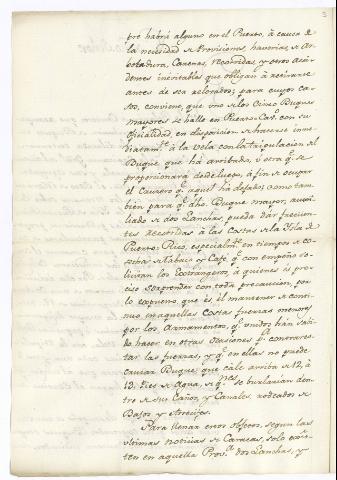 3
pre habrá alguno en el Puerto, à causa de
la necesidad de Provisiones, haverias de Ar-
boladura, Carenas, recorridas, y otros acci-
dentes inevitables que obligan à retirarse
antes de ser relevados; para cuyos ca-
sos, conviene, que uno de los cinco Buques
mayores se halle en Puerto Cav.º con su
oficialidad, en disposicion de hacerse inme-
diatam.te à la vela con la tripulacion del
Buque que há arribado, ù otra q.e se
proporcionará desde luego, à fin de ocupar
el Crucero q.e aquel há dejado; como tam-
bien para q.e dho. Buque mayor, auxi-
liado de dos Lanchas, pueda dar frecuen-
tes recorridas à las Costas de la Ysla de
Puerto-Rico, especialm.te en tiempos de co-
secha de Tabaco y Café, q.e con empeño so-
licitan los Extrangeros, à quienes es pre-
ciso sorprender con toda precaucion, por
lo expuesto que és el mantener de conti-
nuo en aquellas Costas fuerzas menores
por los Armamentos, q.e unidos han sabi-
do hacer en otras ocasiones p.a contrares-
tar las fuerzas, y q.e en ellas no puede
cruzar Buque que cale arriba de 12, à
13. Pies de Agua, de q.nes se burlarian den-
tro de sus Caños y Canales, rodeados de
Bajos y Arrecifes.
Para llenar estos objetos, segun las
ultimas noticias de Caracas, solo exis-
ten en aquella Prov.a dos Lanchas, y